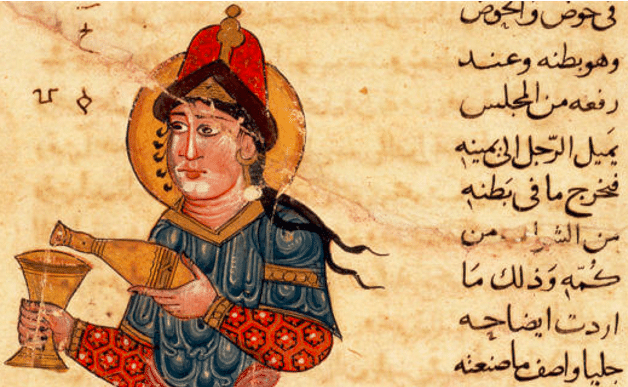 فى حوض والحوض
وهو بطنه وعند
رفعه من المجلس
يميل الرجل الى يمينه
فيخرج ما فى بطنه
من الشراب من
كمّه وذلك ما
اردت ايضاحه
جليا واصف ما صنعته